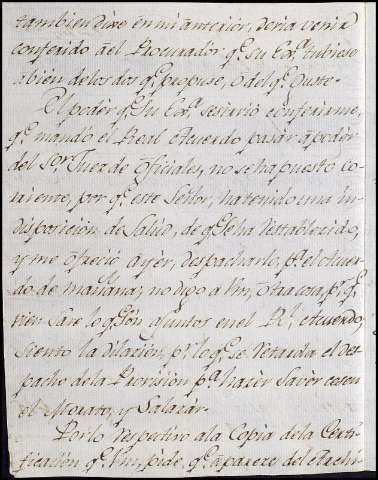 tambien dixe en mi anterior, deria venir
conferido àel Procurador qe. su Exa. tubiese
abien delos dos qe. propuse, ó del qe. Guste.
El podèr qe. Su Exa. sesirvió conferirme,
qe. mandó el Real Acuerdo pasàr àpodèr
del Sor. Juez de Oficiales, no se ha puesto co-
rriente, por qe. este Señor, ha tenido una in-
disposición de Salúd, de qe. se ha restablecido,
y me ofreció ayèr, despacharlo, pa. el Acuer-
do de mañana; no digo a Vm, otra cosa, pr. qe.
vien save lo qe. són asuntos en el Rl. Acuerdo,
siento la dilación, pr. lo qe. se retarda el des-
pacho dela Provisión pa. hacèr Savèr
el Morato, y Salazàr.
Por lo respectivo ala Copia dela Certi-
ficación qe. Vm, pide, qe. aparece del Archi-